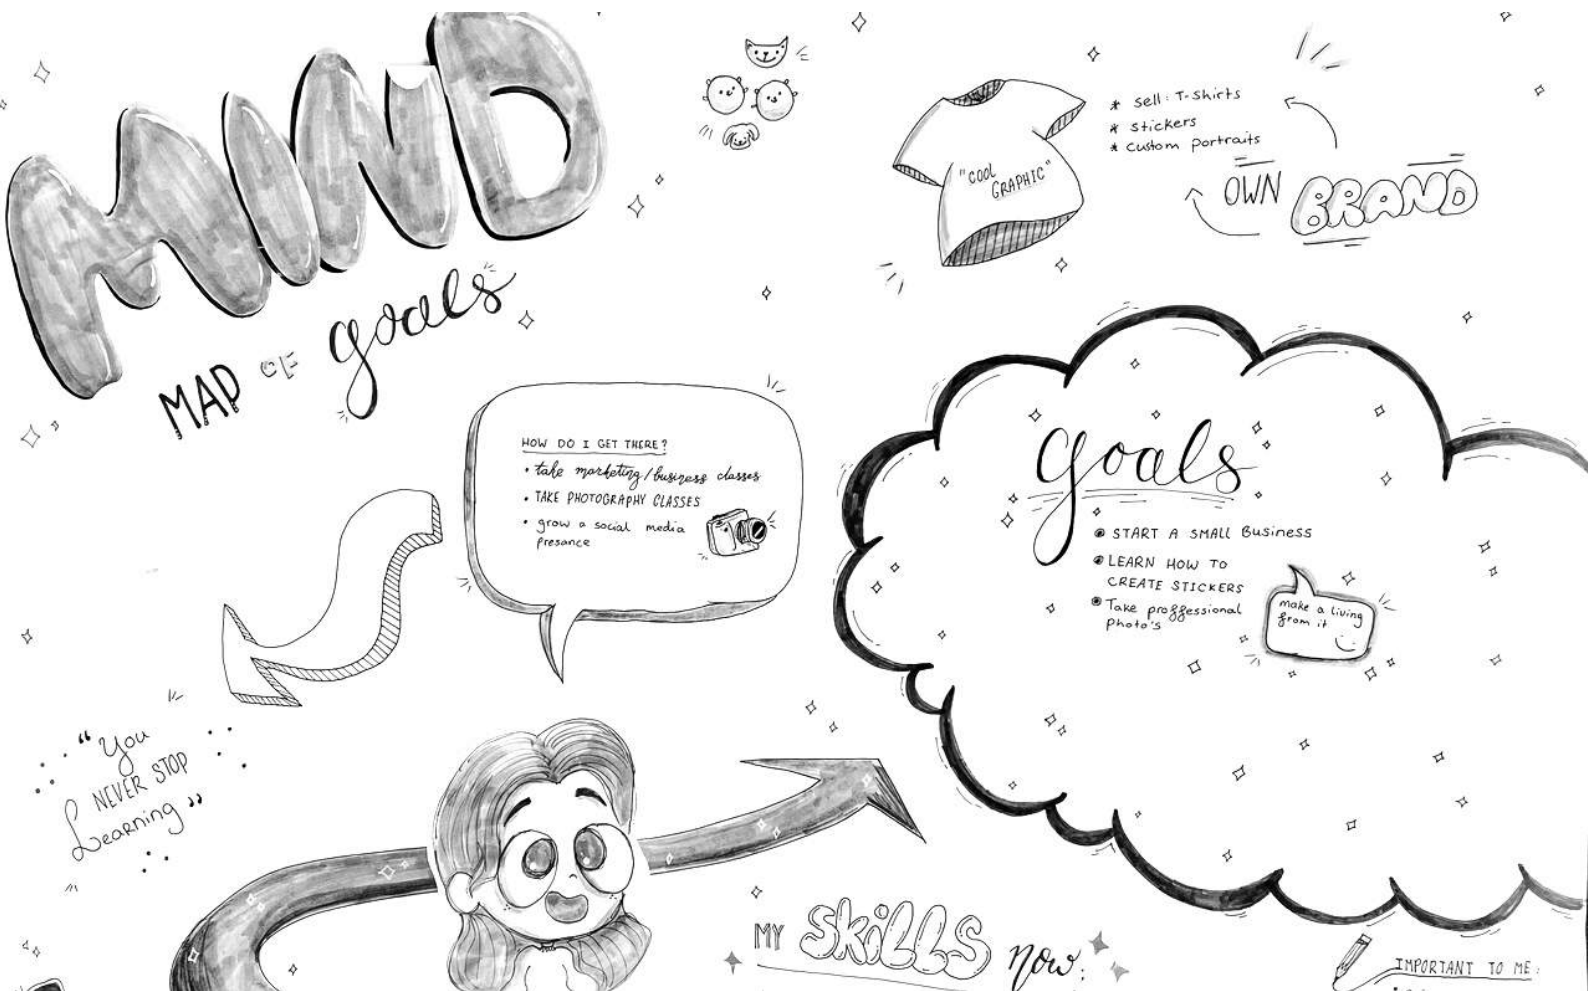 MIND
MAP OF goals
"COOL
GRAPHIC"
* Sell: T-shirts
* Stickers
* custom portraits
OWN BRAND
HOW DO I GET THERE?
• take marketing/business classes
• TAKE PHOTOGRAPHY CLASSES
• grow a social media
presance
goals
START A SMALL Business
LEARN HOW TO
CREATE STICKERS
Take proffessional
photo's
make a living
from it
"You
NEVER STOP
Learning"
MY SKILLS now:
IMPORTANT TO ME: